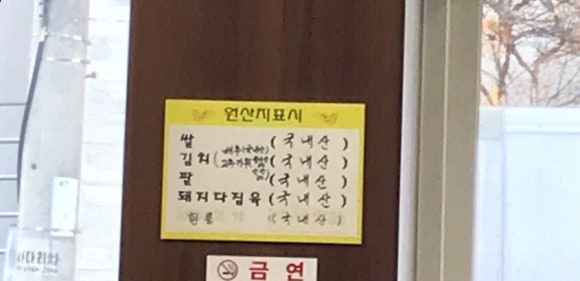 원산지표시
쌀 (국내산)
김치 (배추(국내산) 고추가루 (국내산)
팥 (국내산)
돼지다짐육 (국내산)
(국내산)
금연